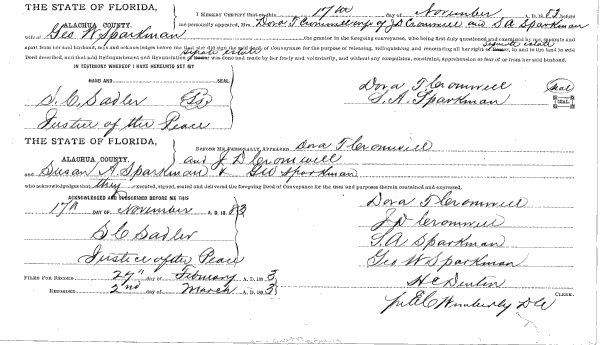 THE STATE OF FLORIDA,
ALACHUA COUNTY.
I HEREBY CERTIFY that on this 17th day of November A. D. 1883 before
me personally appeared, Mrs. Dora T Cromwell wife of J D Cromwell and S A Sparkman
wife of Geo W Sparkman the grantor in the foregoing conveyance, who being first duly questioned and examined by me separate and
apart from her said husband, says and acknowledges before me that she did sign the said deed of conveyance for the purpose of releasing, relinquishing and renouncing all her right of separate estate in and to the land in said
Deed described, and that said relinquishment and Renunciation of separate estate was done and made by her freely and voluntarily, and without any compulsion, constraint, apprehension or fear of or from her said husband.
IN TESTIMONY WHEREOF I HAVE HEREUNTO SET MY
HAND AND SEAL
Dora T Cromwell (Seal)
S. C. Sadler
S. A. Sparkman SEAL
Justice of the Peace
THE STATE OF FLORIDA,
ALACHUA COUNTY.
BEFORE ME PERSONALLY APPEARED Dora T Cromwell
and J D Cromwell
and Susan A Sparkman & Geo Sparkman
who acknowledges that they executed, signed, sealed and delivered the foregoing Deed of Conveyance for the uses and purposes therein contained and expressed.
ACKNOWLEDGED AND SUBSCRIBED BEFORE ME THIS
17th DAY OF November A. D. 1883
Dora T Cromwell
J D Cromwell
S C Sadler
S. A Sparkman
Justice of the Peace
Geo W Sparkman
FILED FOR RECORD 27th day of February A. D. 1883
H C Denton CLERK.
RECORDED 2nd day of March A. D. 1883
per E C Wimberly D C